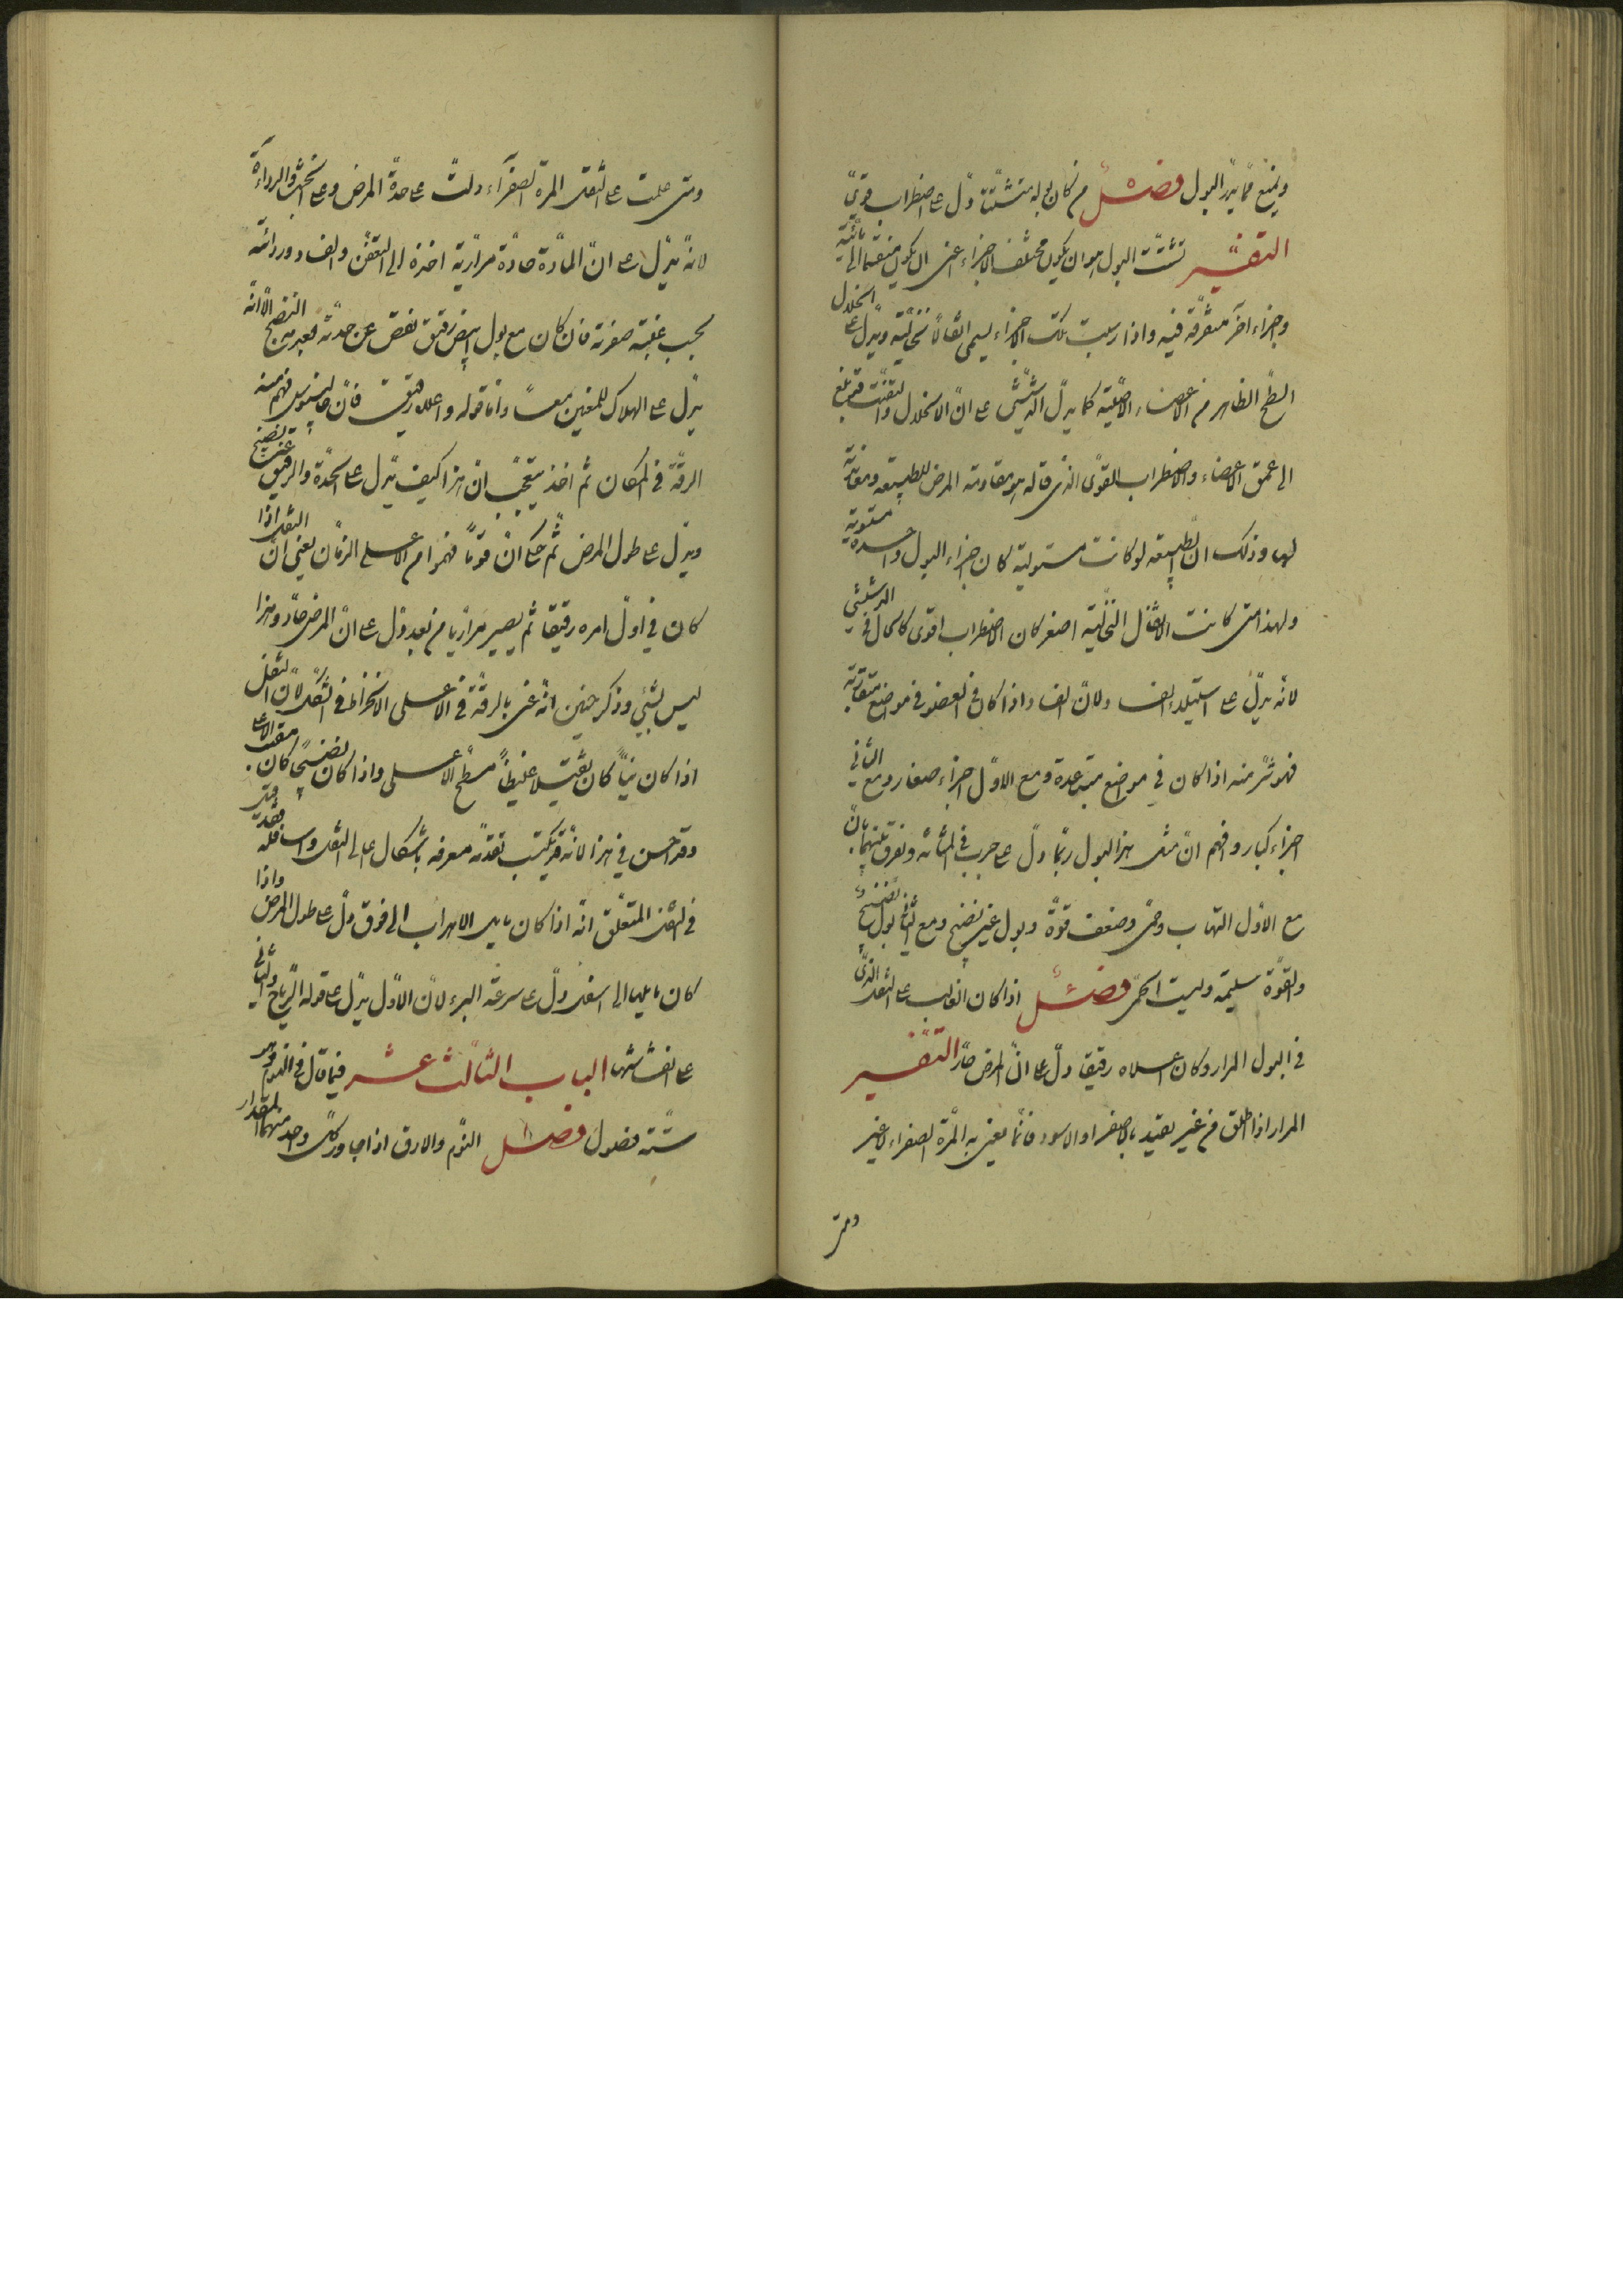 ويمنع مما يدر البول فصل من كان بوله متشتتا دل على اضطراب قوى
التفسير تشتت البول هو ان يكون مختلف الاجزاء اعنى ان يكون منقسما الى مائية
واجزاء اخر متفرقة فيه واذا رسبت تلك الاجزاء يسمى اثقالا نخالية ويدل على انحلال
السطح الظاهر من الاعضاء الاصلية كما يدل الدشيشى على ان الانحلال والتفتت قد بلغ
الى عمق الاعضاء والاضطراب القوى الذى قاله هو مقاومة المرض للطبيعة ومعاندته
لها وذلك ان الطبيعة لو كانت مستولية كان اجزاء البول واحدة مستوية
ولهذا متى كانت الاثقال النخالية اصغر كان الاضطراب اقوى كالحال فى الدشيشى
لانه يدل على استيلاء الفساد ولان الفساد اذا كان فى العضو فى مواضع متقاربة
فهو شر منه اذا كان فى مواضع متباعدة ومع الاول اجزاء صغار ومع الثانى
اجزاء كبار وافهم ان مثل هذا البول ربما دل على جرب فى المثانة ويفرق بينهما بان
مع الاول التهاب وحمى وضعف قوة وبول غير نضيج ومع الثانى بول نضيج
والقوة سليمة وليست الحمى فصل اذا كان الغالب على الثفل الذى
فى البول المرار وكان اعلاه رقيقا دل على ان المرض حار التفسير
المرار اذا اطلق من غير تقييد بالاصفر او الاسود فانما يعنى به المرة الصفراء لا غير
ومتى
ومتى غلبت على الثفل المرة الصفراء دلت على حدة المرض وعلى الخبث والرداءة
لانه يدل على ان المادة حادة مرارية اخذة الى التعفن والفساد ورداءته
بحسب غلبة صفرته فان كان مع بول ابيض رقيق نقص عن حدته لبعده من النضج الا انه
يدل على الهلاك للمعنيين معا واما قوله واعلاه رقيق فان جالينوس فهم منه
الرقة فى المكان ثم اخذ يتعجب ان هذا كيف يدل على الحدة والرقيق غير نضيج
ويدل على طول المرض ثم حكى ان قوما فهموا من الاعلى الزمان يعنى ان الثفل اذا
كان فى اول امره رقيقا ثم يصير مراريا من بعد دل على ان المرض حاد وهذا
ليس بشيئ وذكر حنين انه عنى بالرقة فى الاعلى الانخراط فى الشكل لان الثفل
اذا كان نيا كان ثقيلا غليظا مسطح الاعلى واذا كان نضيجا كان مقبب الاعلى
وقد احسن فى هذا لانه قد يكتسب تقدمة معرفة باشكال اعالى الثفل واسافله فقد قيل
فى الثفل المتعلق انه اذا كان مايل الاهداب الى فوق دل على طول المرض واذا
كان مايلها الى اسفل دل على سرعة البرء لان الاول يدل على قوة الرياح والثانى
على انفشاشها الباب الثالث عشر فيما قال فى النوم وهو
ستة فصول فصل النوم والارق اذا جاوز كل واحد منهما المقدار